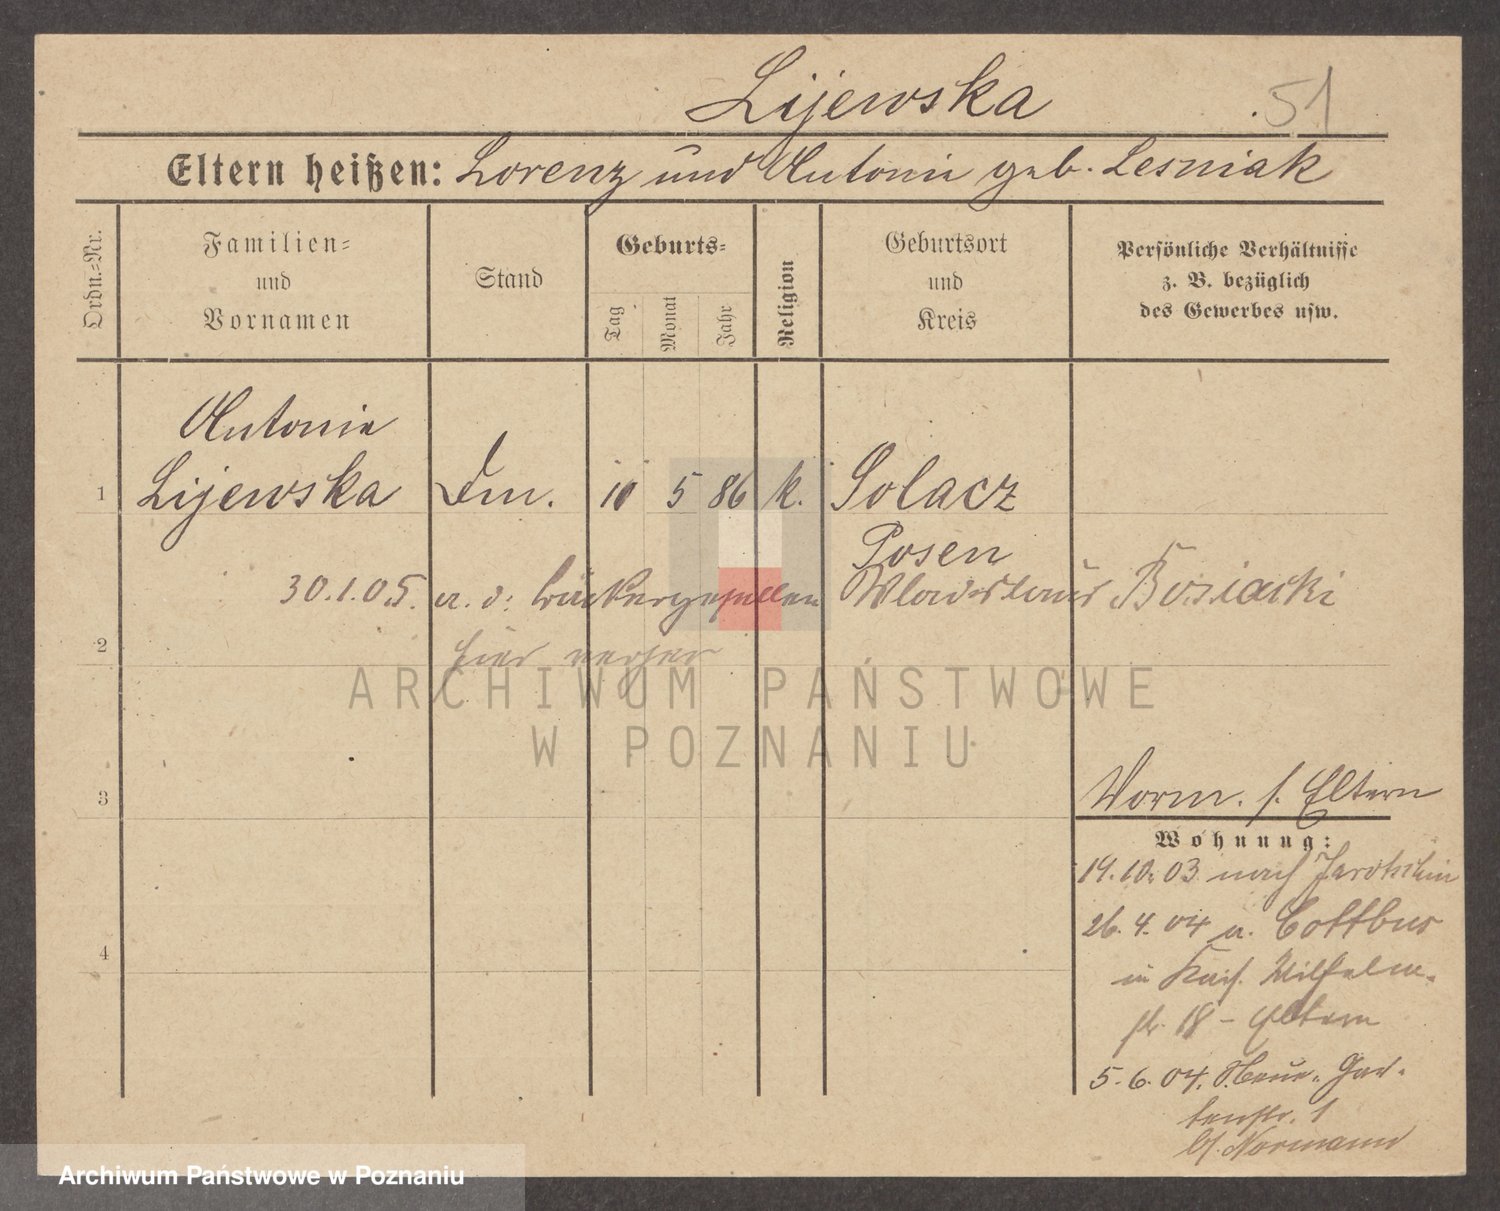 Lijewska
51
Eltern heißen: Lorenz und Antonie geb. Lesniak
Ordn.-Nr.
Familien-
und
Vornamen
Stand
Geburts-
Tag
Monat
Jahr
Religion
Geburtsort
und
Kreis
Persönliche Verhältnisse
z. B. bezüglich
des Gewerbes usw.
Antonie
1 Lijewska 10 5 86 k. Solacz
Posen
30.1.05. a. d. Bäckergesellen Wladislaus Bosiacki
2
hier
ARCHIWUM PAŃSTWOWE
W POZNANIU
3
Vorm. s. Eltern
Wohnung:
19.10.03 nach Jarotschin
4
26.4.04 a. Cottbus
in Kais. Wilhelm-
str. 18 – Eltern
5.6.04. Neue Gar-
tenstr. 1
b/ Normann
Archiwum Państwowe w Poznaniu